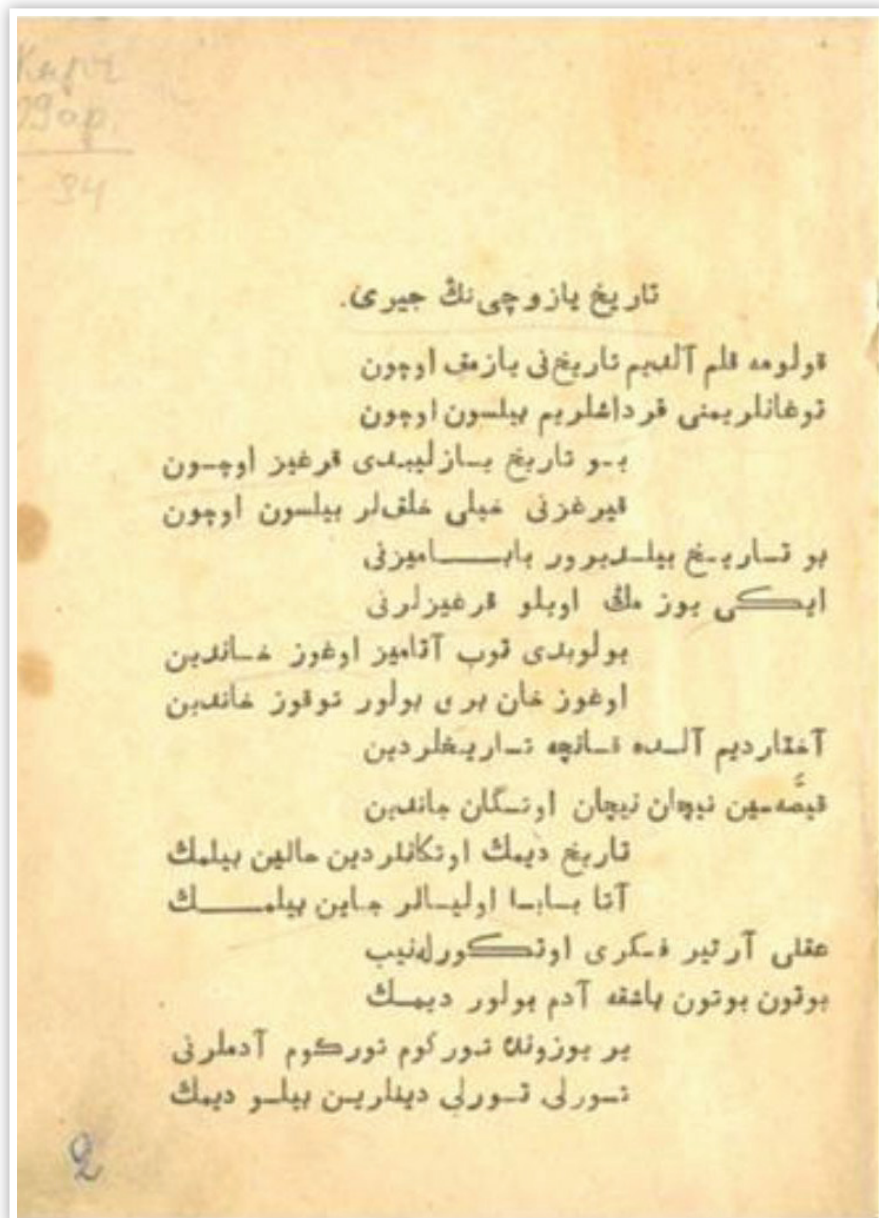 Кирг
90р.
34
تاريخ يازوچی‌نڭ جيری.
قولومه قلم آلديم تاريخ‌نی يازمق اوچون
توغانلريمنی قرداشلريم بيلسون اوچون
بـو تاريخ يـازليبدی قرغيز اوچـون
قيرغزنی خيلی خلق‌لر بيلسون اوچون
بو تـاريـخ بيلـديرور بابـــاميزنی
ايكی يوز مڭ اويلو قرغيزلرنی
بولوبدی توب آتاميز اوغوز خـاندين
اوغوز خان بری بولور توقوز خاندين
آختارديم آلـده قـانچه تـاريـخلردين
قيصّه‌سين نيچان نيچان اوتـگان جاندين
تاريخ ديمك اوتكانلردين حالين بيلمك
آتا بـابـا اوليـالر جـاين بيلمــك
عقلی آرتير فـكری اوتكورله‌نيب
بوتون بوتون باشقه آدم بولور ديمـك
ير يوزونده تـوركوم توركوم آدملرنی
تـورلی تـورلی دينلريـن بيلـو ديمك
2